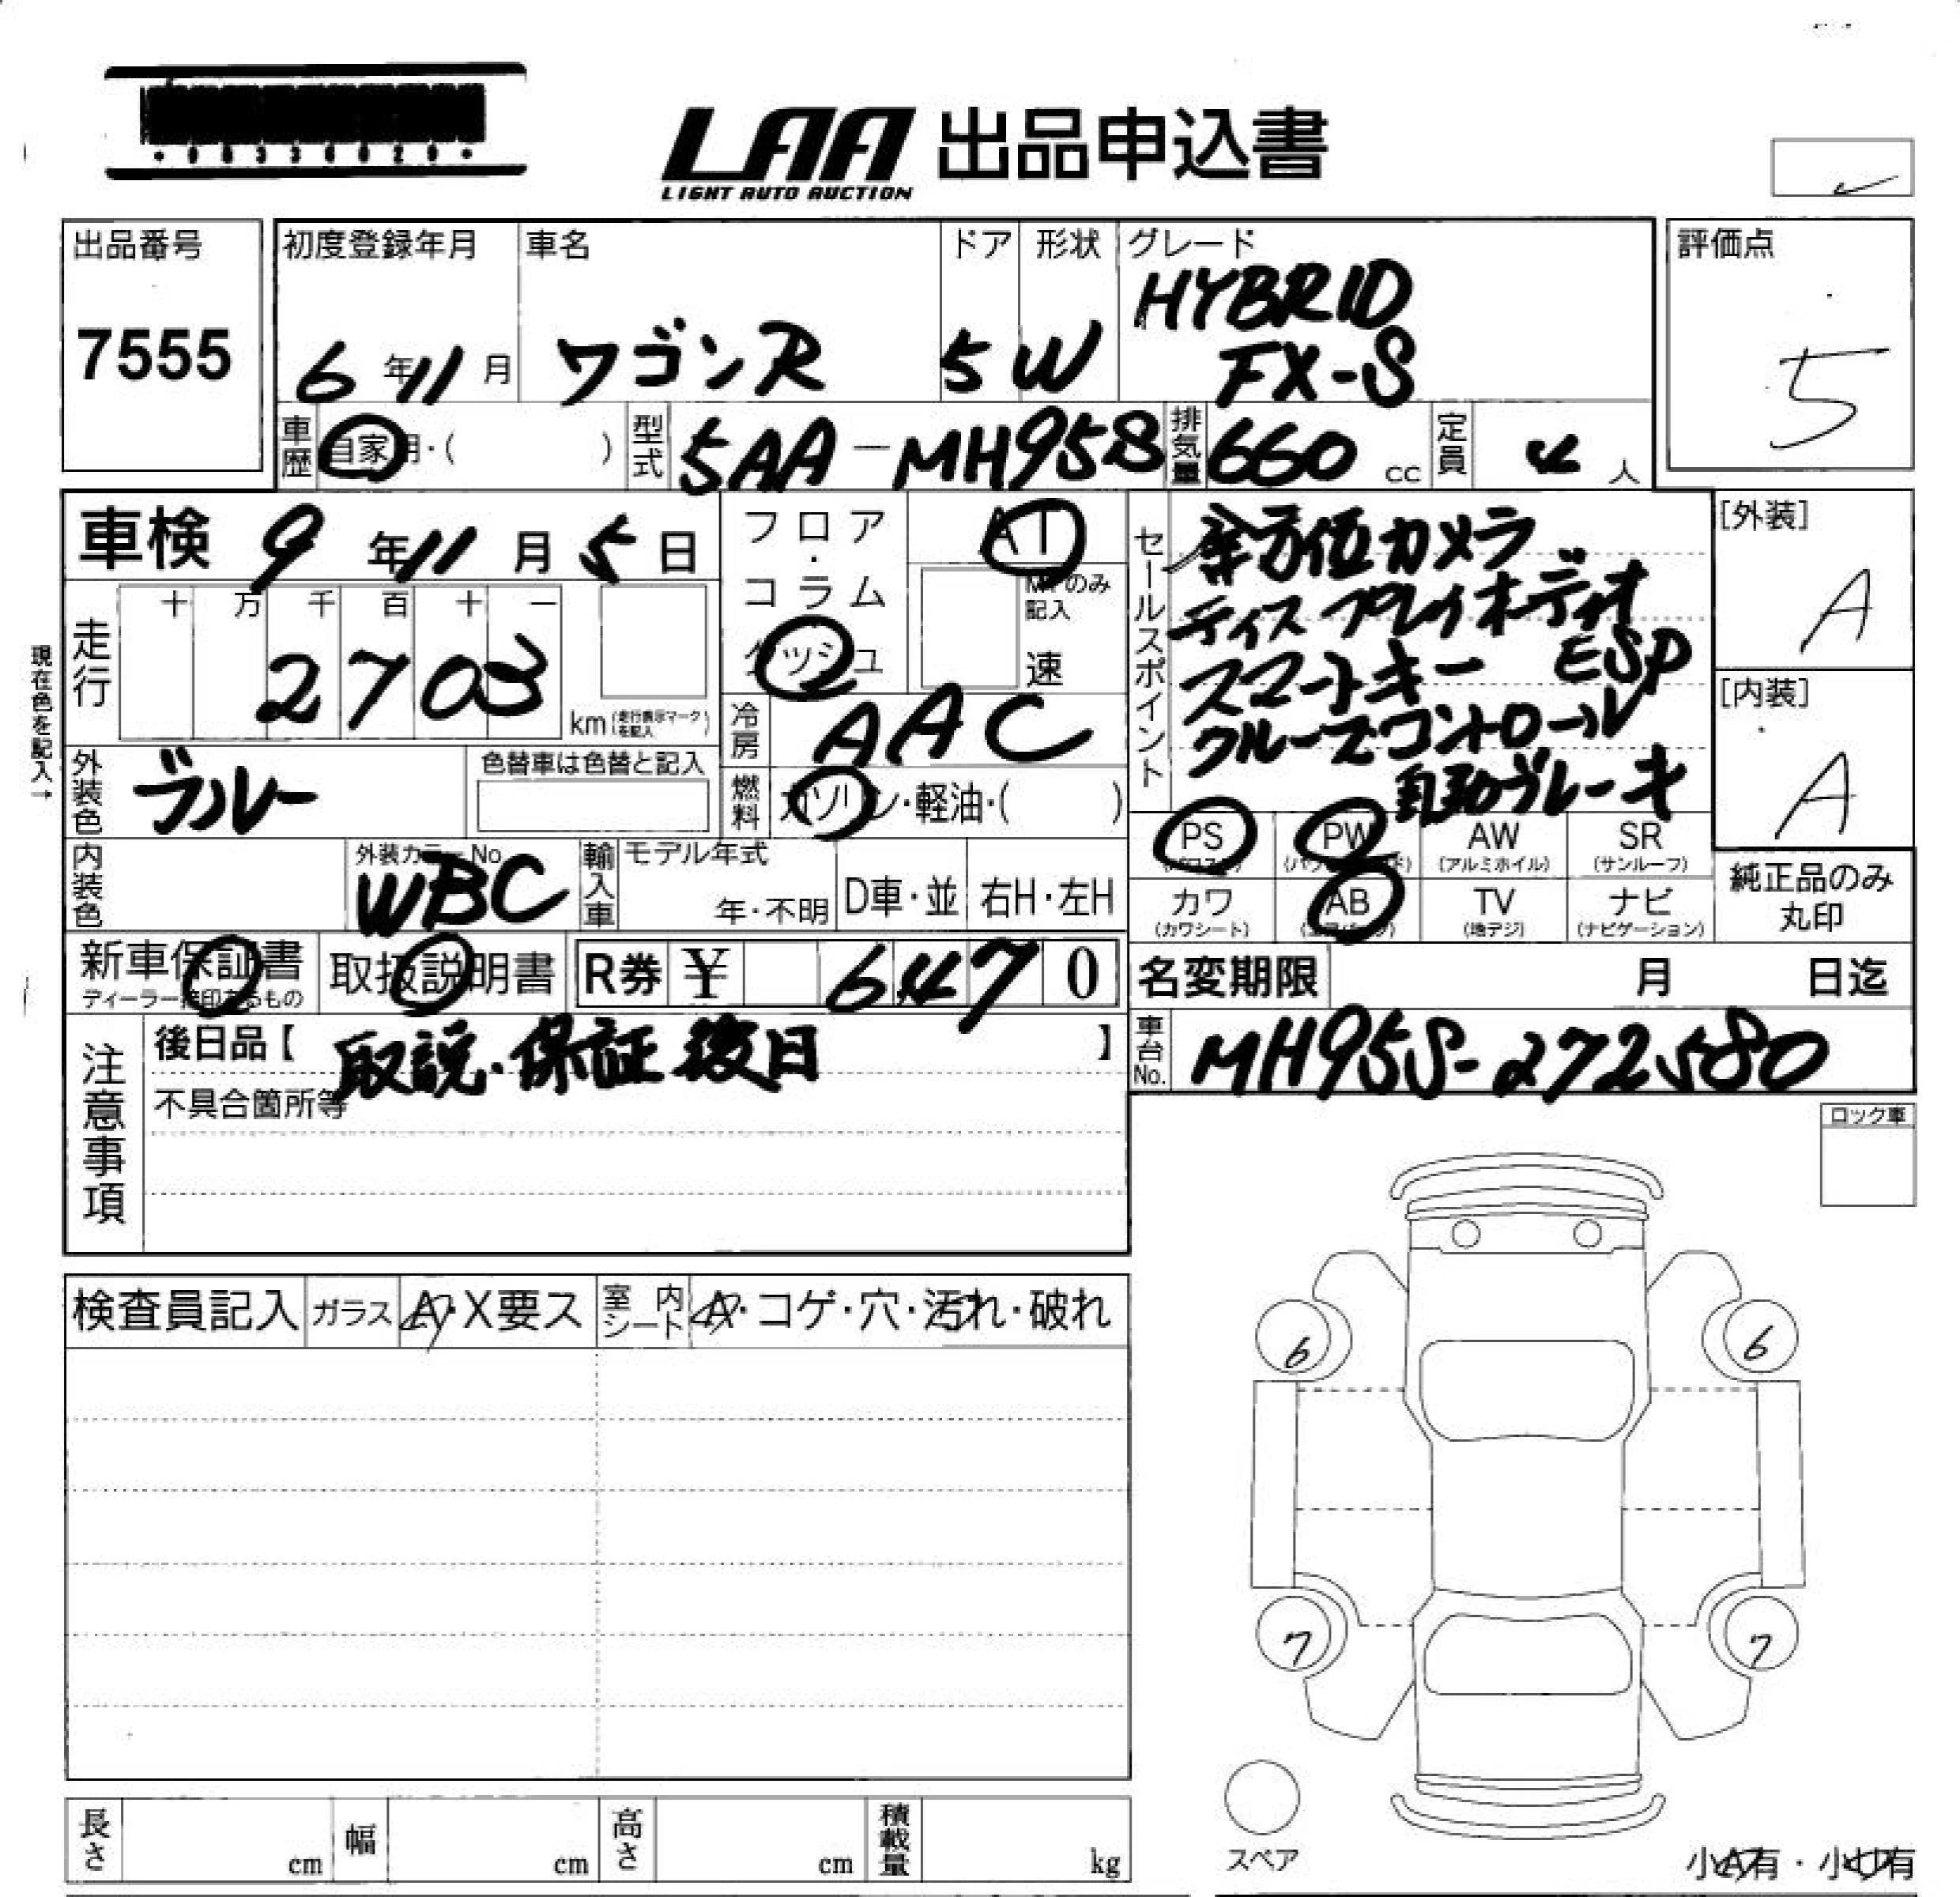 LAA 出品申込書
LIGHT AUTO AUCTION
出品番号
7555
初度登録年月
6年11月
車名
ワゴンR
ドア
5
形状
W
グレード
HYBRID
FX-S
評価点
5
車歴 自家用・( )
型式 5AA-MH95S
排気量 660 cc
定員 4 人
車検 9年11月5日
フロア・コラム
ダッシュ
AT
MTのみ記入
速
走行
十 万 千 百 十 一
2703
km (走行表示マークを記入)
冷房 AAC
現在色を記入→
外装色 ブルー
色替車は色替と記入
燃料 ガソリン・軽油・( )
内装色
外装カラーNo.
WBC
輸入車
モデル年式
年・不明
D車・並
右H・左H
新車保証書
ディーラー捺印あるもの
取扱説明書
R券 ¥ 6470
セールスポイント
全方位カメラ
ディスプレイオーディオ
スマートキー ESP
クルーズコントロール
自動ブレーキ
[外装]
A
[内装]
A
PS
PW
AW
(アルミホイル)
SR
(サンルーフ)
カワ
(カワシート)
AB
(エアバッグ)
TV
(地デジ)
ナビ
(ナビゲーション)
純正品のみ
丸印
名変期限 月 日迄
車台No. MH95S-272580
注意事項
後日品【 取説・保証 後日 】
不具合箇所等
ロック車
検査員記入
ガラス
A・X要ス
室内シート
A・コゲ・穴・汚れ・破れ
6
6
7
7
スペア
長さ cm
幅 cm
高さ cm
積載量 kg
小A有・小U有